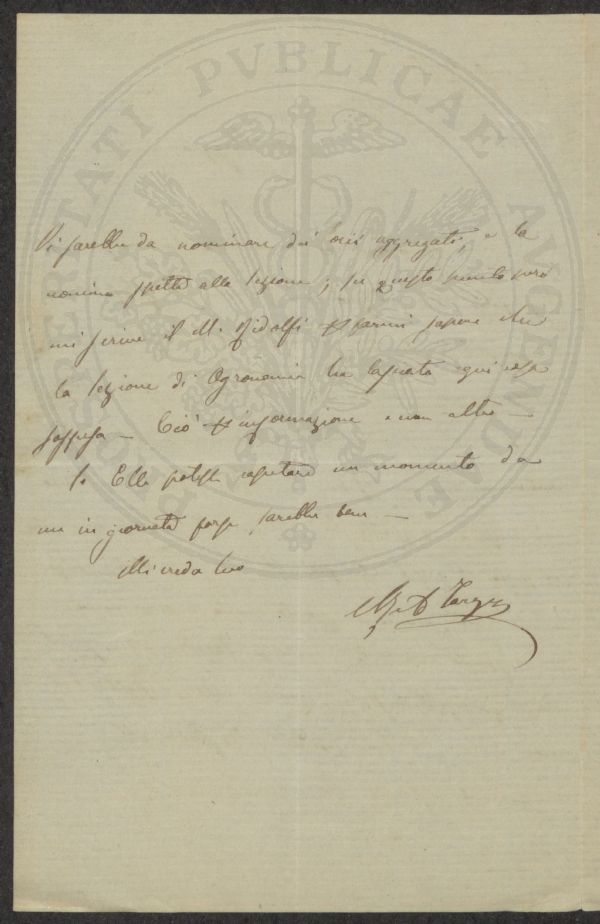 PROSPERITATI PVBLICAE AVGENDAE
Vi sarebbe da nominare dei soci aggregati, e la
nomina spetta alla Sezione; su questo punto però
mi scrive il M. Ridolfi p farmi sapere che
la Sezione di Agronomia ha lasciato ogni cosa
sospesa — Ciò p informazione e non altro —
Se Ella potesse capitare un momento da
me in giornata forse sarebbe bene —
Mi creda Suo